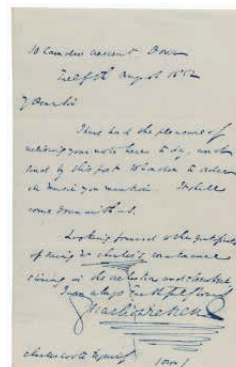 10 Camden Crescent. Dover
Twelfth August 1852
My Dear Sir
I have had the pleasure of
receiving your note here to day, and
send by this post to London to order
the music you mention. It shall
come down with us.
Looking forward to the gratification
of seeing your
in the orchestra and elsewhere
I am always Faithfully Yours
Charles Dickens
Charles Coote Esquire